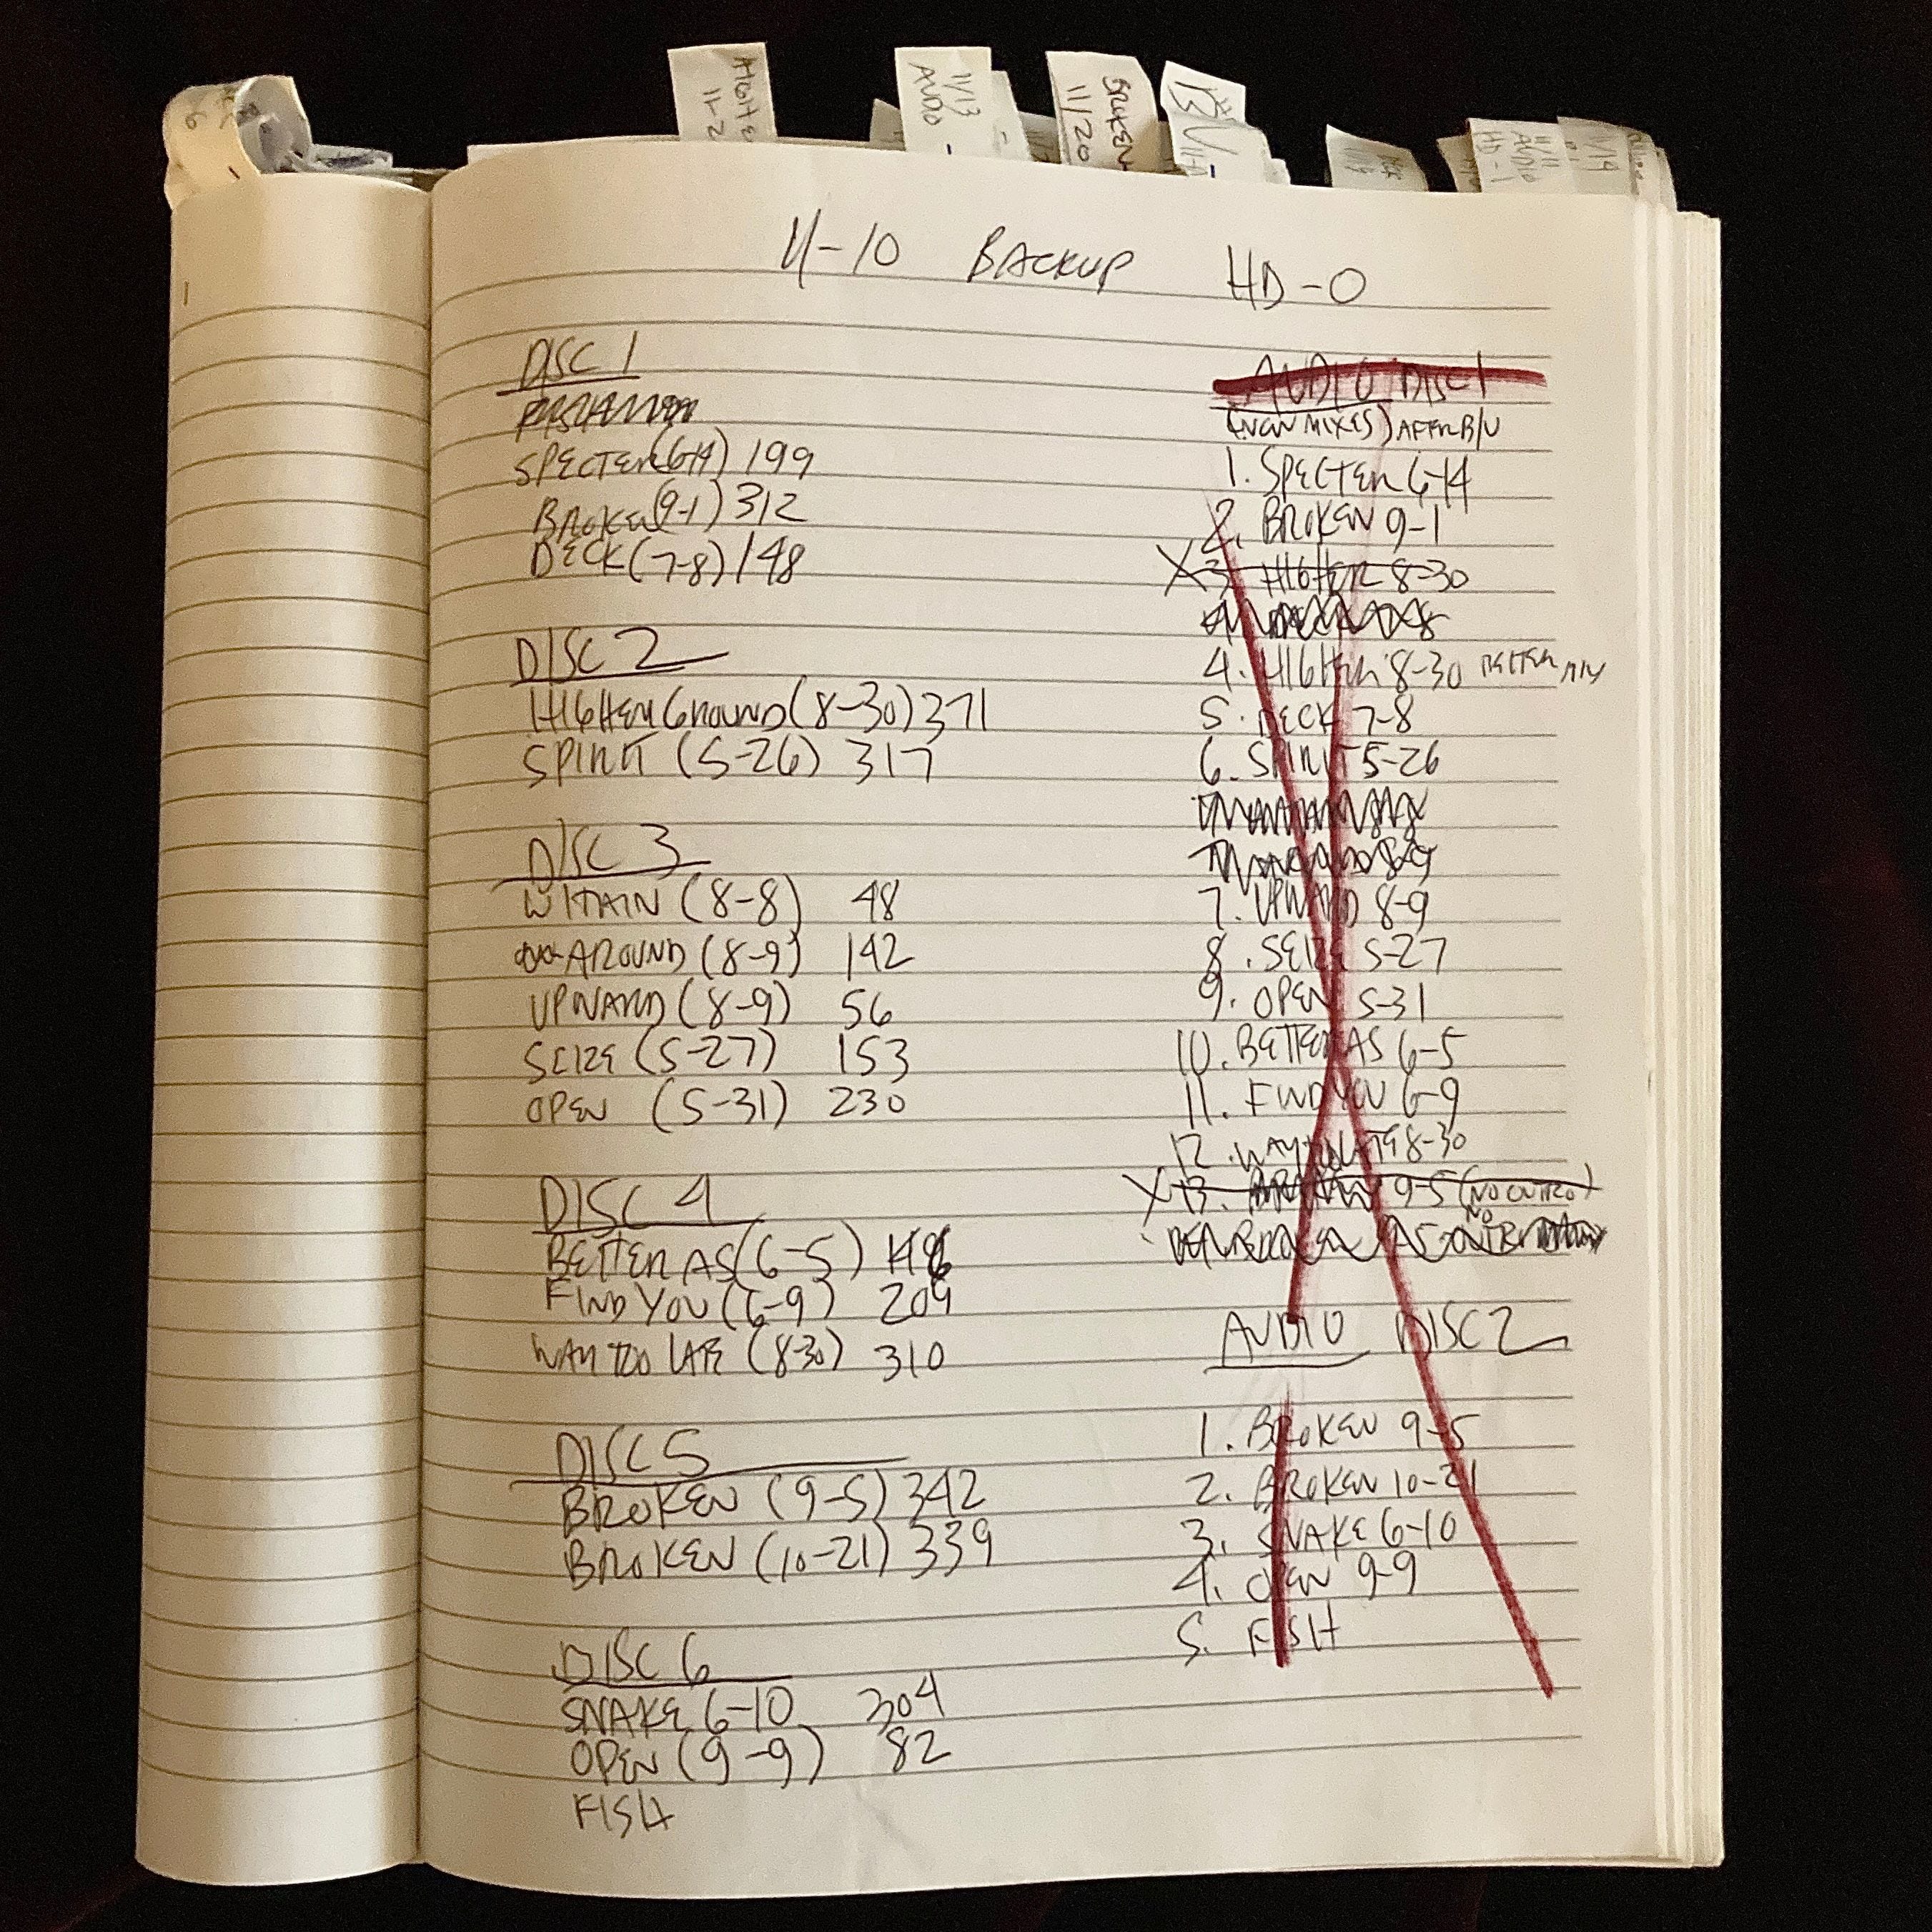 HIGHE
11-2
11/13
AUDIO
BROKEN
11/20
11/11
AUDIO
HD-1
11/19
11-10 BACKUP HD-0
DISC 1
SPECTER (6-14) 199
BROKEN (9-1) 312
DECK (7-8) 148
DISC 2
HIGHER GROUND (8-30) 371
SPIRIT (5-26) 317
DISC 3
WITHIN (8-8) 48
AROUND (8-9) 142
UPWARD (8-9) 56
SEIZE (5-27) 153
OPEN (5-31) 230
DISC 4
BETTER AS (6-5)
FIND YOU (6-9) 209
WAY TOO LATE (8-30) 310
DISC 5
BROKEN (9-5) 342
BROKEN (10-21) 339
DISC 6
SNAKE 6-10 304
OPEN (9-9) 82
FISH
AUDIO DISC 1
(NEW MIXES) AFTER B/U
1. SPECTER 6-14
2. BROKEN 9-1
X 3. HIGHER 8-30
4. HIGHER 8-30 BETTER MIX
5. DECK 7-8
6. SPIRIT 5-26
7. UPWARD 8-9
8. SEIZE 5-27
9. OPEN 5-31
10. BETTER AS 6-5
11. FIND YOU 6-9
12. WAY TOO LATE 8-30
X 13. 9-5 (NO OUTRO)
AUDIO DISC 2
1. BROKEN 9-5
2. BROKEN 10-21
3. SNAKE 6-10
4. OPEN 9-9
5. FISH